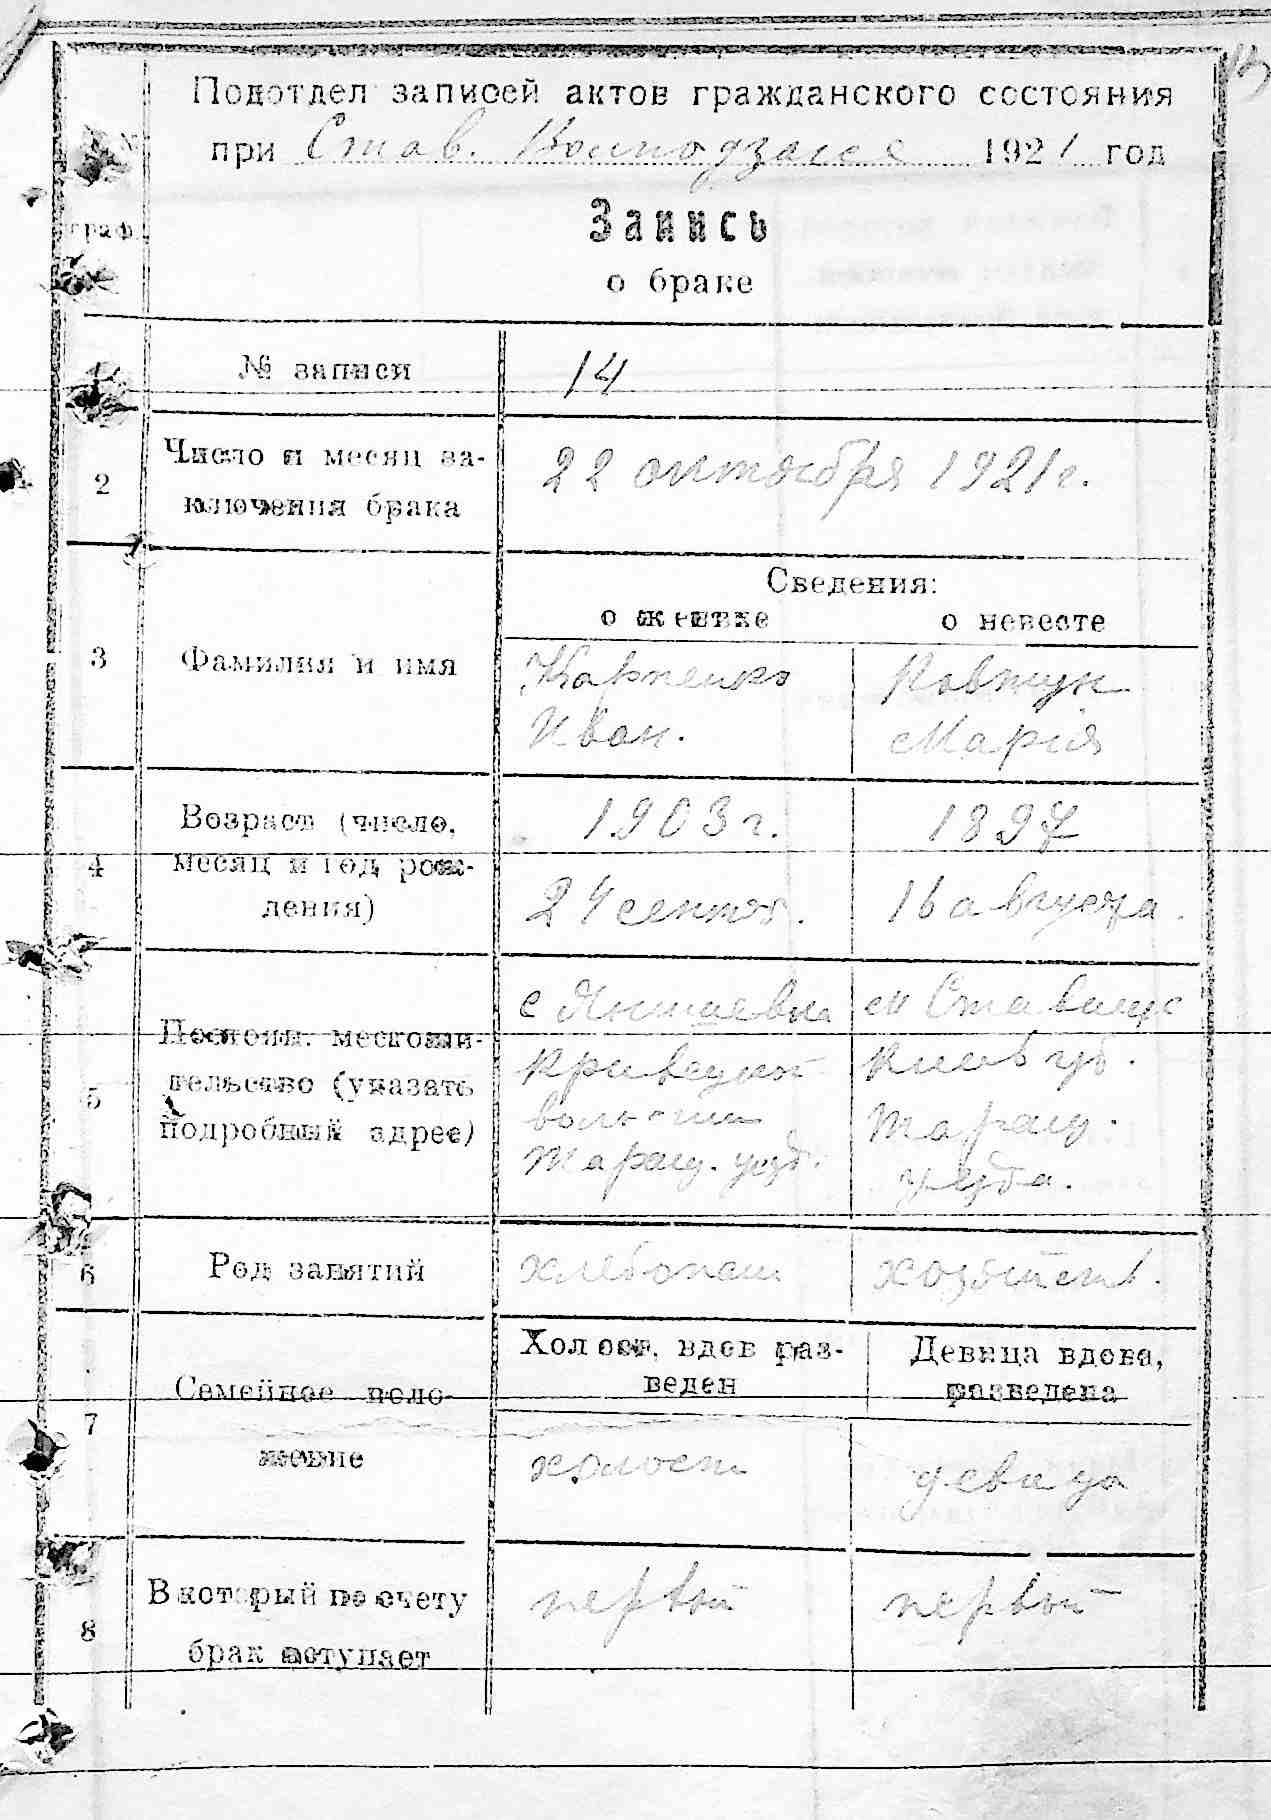 Подотдел записей актов гражданского состояния
при Став. 1921 год
граф.
Запись
о браке
№ записи 14
2 Число и месяц за-
ключения брака
22 октября 1921 г.
Сведения:
о женихе о невесте
3 Фамилия и имя
Карпенко Ковтун
Иван. Марія
4 Возраст (число,
месяц и год рож-
дения)
1903 г. 1897
24 сентяб. 16 августа.
5 Постоян. местожи-
тельство (указать
подробный адрес)
с м Ставище
Кривецкой Киев губ.
волости Таращ.
Таращ. уезд. уезда.
6 Род занятий хлебопаш хозяйств.
7 Семейное поло-
жение
Холост, вдов раз-
веден
Девица вдова,
разведена
холост девица
8 В который по счету
брак вступает
первый первый